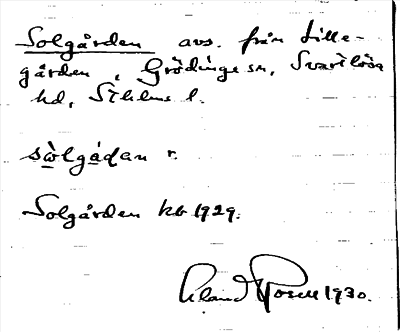 Solgården avs. från Lille-
gården, Grödinge sn, Svartlösa
hd, Sthlms l.
sòlgådan r.
Solgården kb 1929.
Rosell 1930.